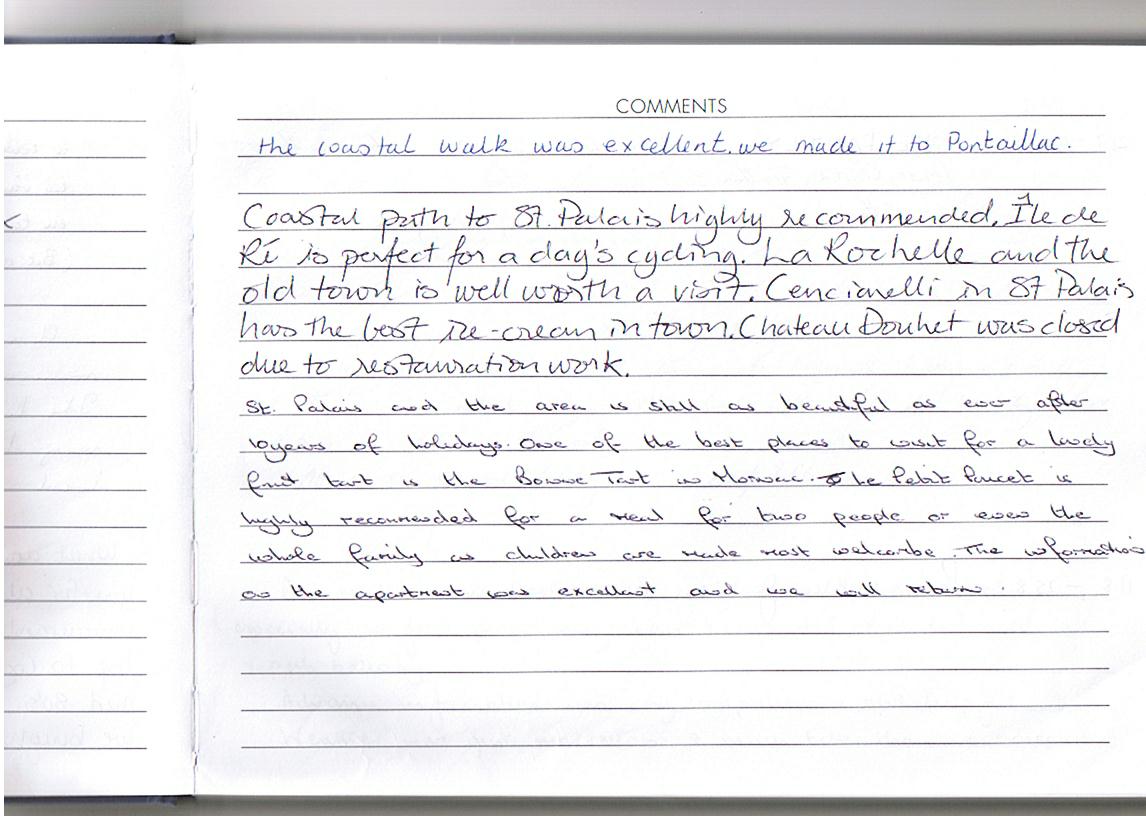 COMMENTS
the coastal walk was excellent. we made it to Pontaillac.
Coastal path to St. Palais highly recommended. Île de
Ré is perfect for a day's cycling. La Rochelle and the
old town is well worth a visit. Cencianelli in St Palais
has the best ice-cream in town. Chateau Douhet was closed
due to restauration work.
St. Palais and the area is still as beautiful as ever after
10 years of holidays. One of the best places to visit for a lovely
fruit tart is the Bonne Tart in Mornac. The Petit Poucet is
highly recommended for a meal for two people or even the
whole family as children are made most welcome. The information
in the apartment was excellent and we will return.